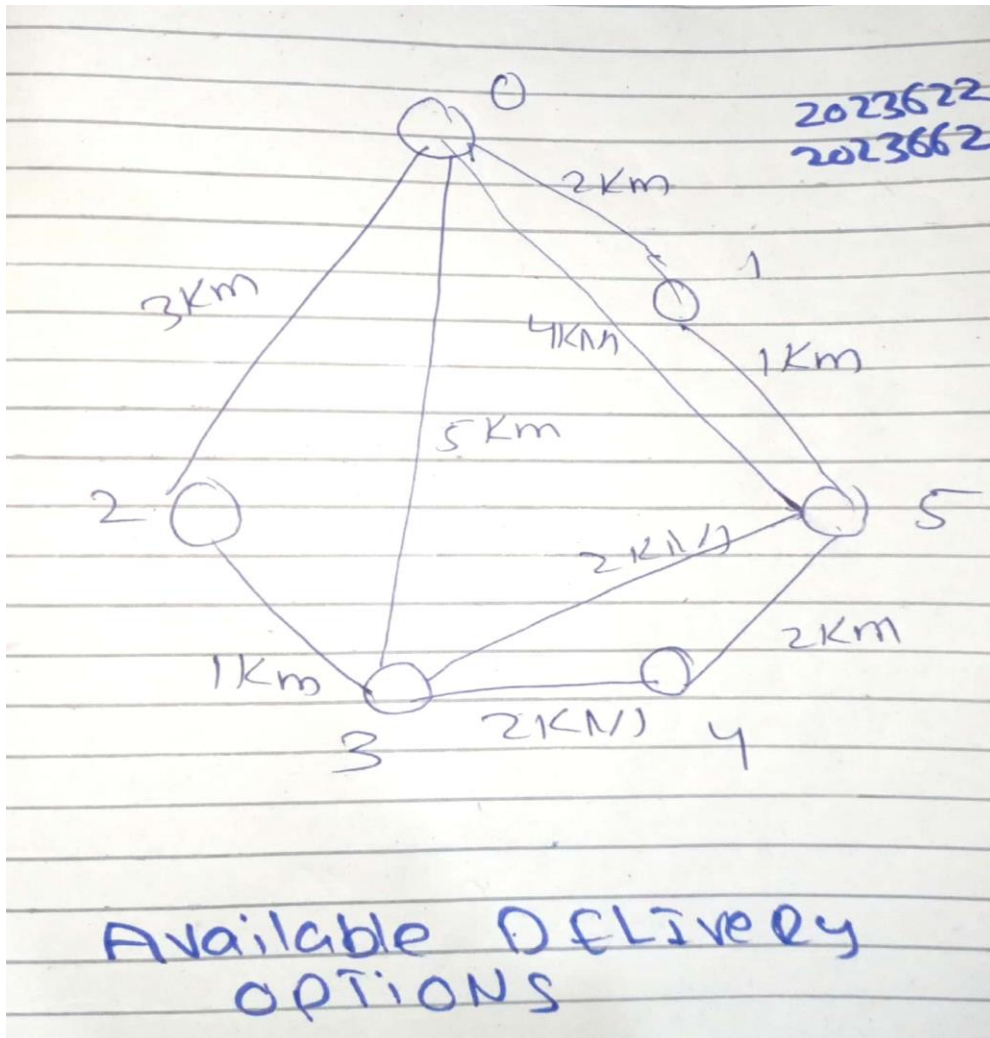 0
2023622
2023662
2Km
1
3Km
4KM
1Km
5Km
2
5
2KM
2Km
1Km
2KM
3
4
Available DELivery
OPTiONS